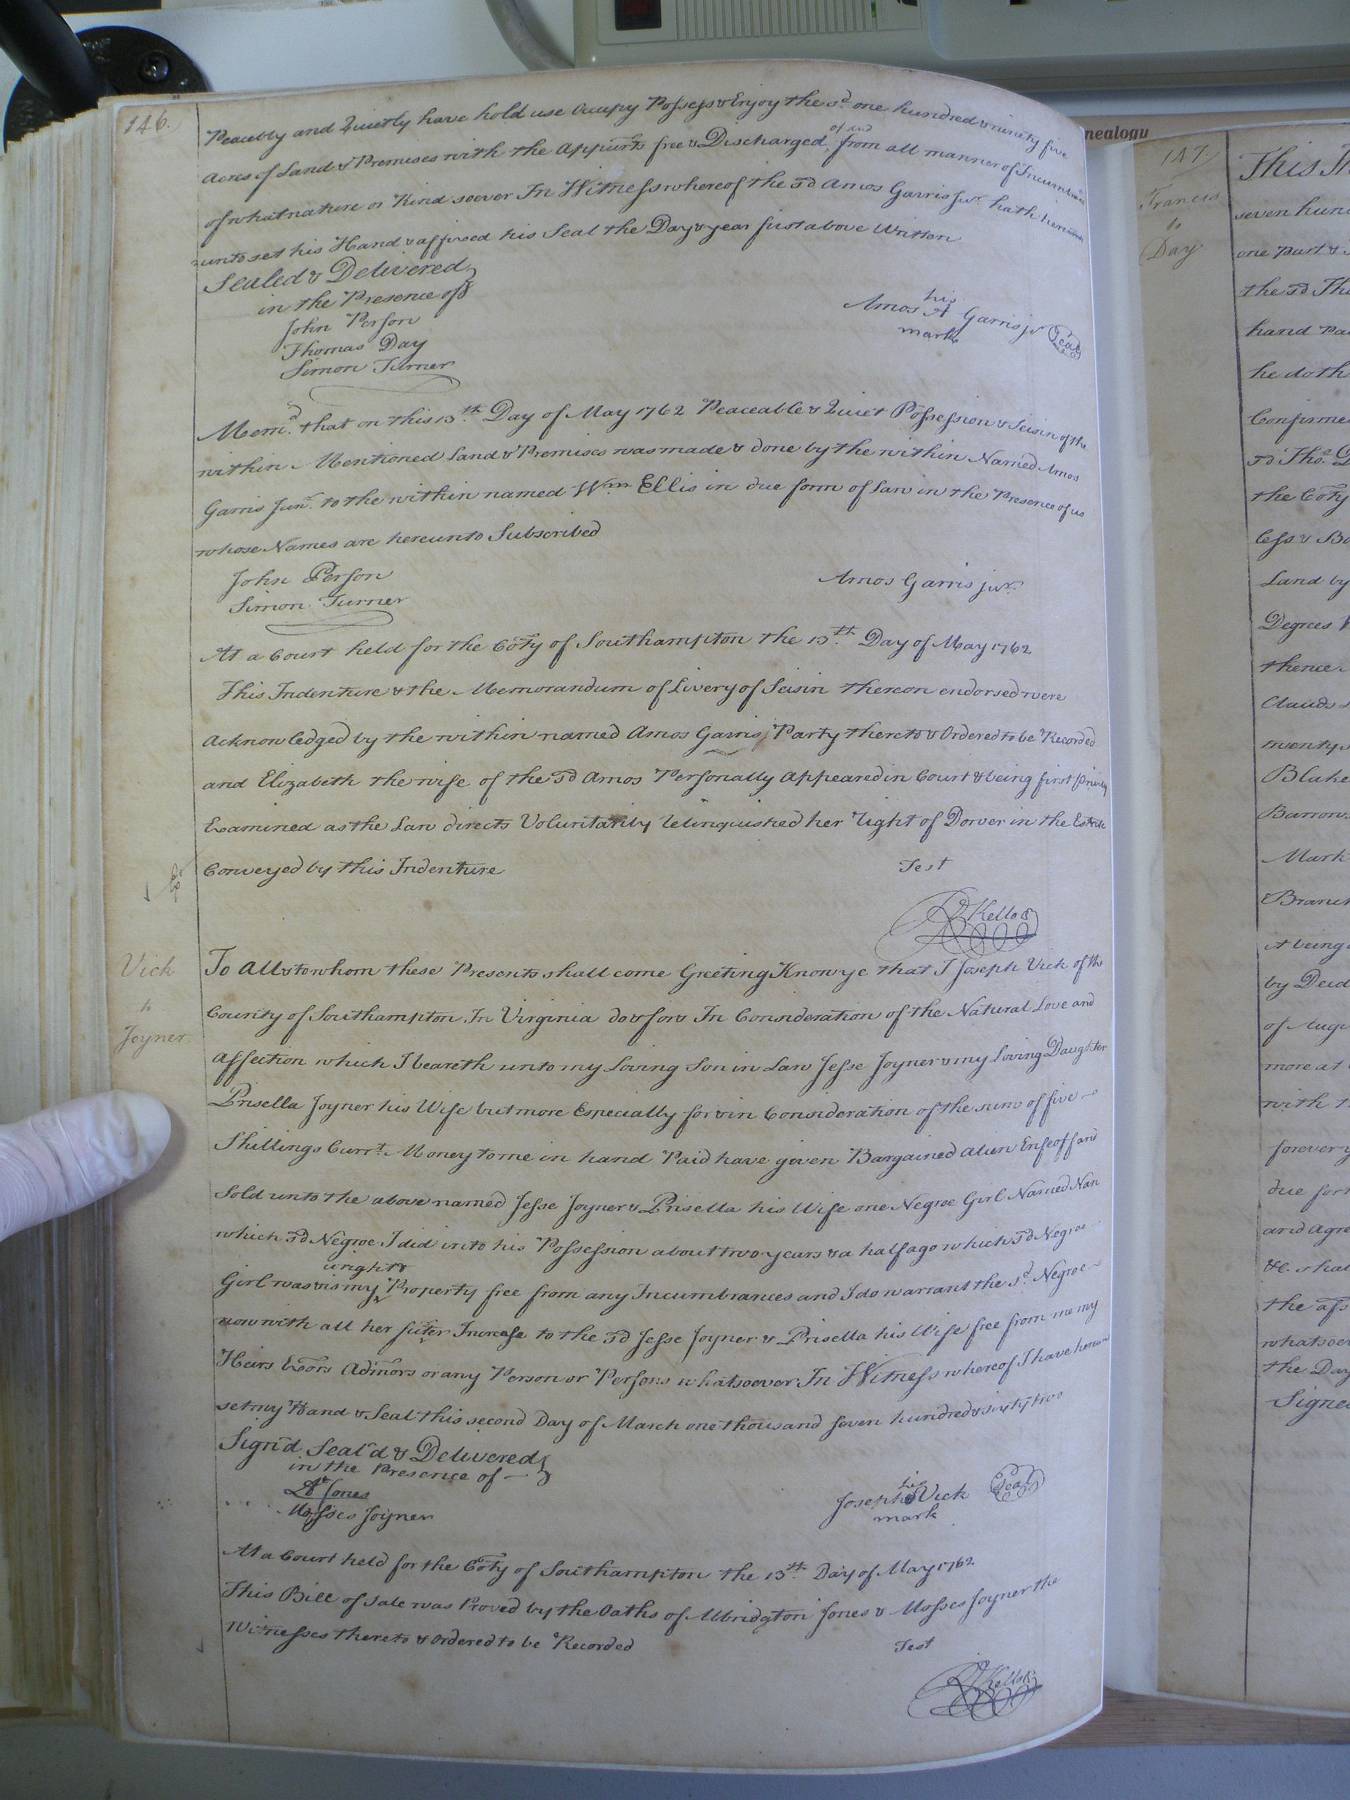 146.
Peacebly and Quietly have hold use Occupy Possess & Enjoy the sd. one hundred & ninety five
Acres of Land & Premises with the Appurts free & Discharged of and from all manner of Incumbrances
of what nature or Kind soever In Witness whereof the sd Amos Garris Junr. hath here
unto set his Hand & affixed his Seal the Day & year first above Written
Sealed & Delivered
in the Presence of
John Person
Thomas Day
Simon Turner
his
Amos A Garris jr Seal
mark
Memd. that on this 13th. Day of May 1762 Peaceable & Quiet Possession & Seisin of the
within Mentioned Land & Premises was made & done by the within Named Amos
Garris Junr. to the within named Wm Ellis in due form of Law in the Presence of us
whose Names are hereunto Subscribed
John Person
Simon Turner
Amos Garris junr.
At a Court held for the Coty of Southampton the 13th. Day of May 1762
This Indenture & the Memorandum of Livery of Seisin thereon endorsed were
Acknowledged by the within named Amos Garris Party thereto & Ordered to be Recorded
and Elizabeth the wife of the sd Amos Personally Appeared in Court & being first privily
Examined as the Law directs Voluntarily Relinquished her Right of Dower in the Estate
Conveyed by this Indenture
Test
R Kello
Vick
to
Joyner
To All to whom these Presents shall come Greeting Know ye that I Joseph Vick of the
County of Southampton In Virginia do & for & In Consideration of the Natural Love and
Affection which I beareth unto my Loving Son in Law Jesse Joyner & my Loving Daughter
Prisella Joyner his Wife but more Especially for & in Consideration of the sum of five
Shillings Currt. Money to me in hand Paid have given Bargained alien Enfeoff and
Sold unto the above named Jesse Joyner & Prisella his Wife one Negroe Girl Named Nan
which sd Negroe I did in to his Possession about two years & a half ago which sd Negroe
wright &
Girl was & is my Property free from any Incumbrances and I do warrant the sd. Negroe
now with all her futer Increase to the sd Jesse Joyner & Prisella his Wife free from me my
Heirs Exors Adminors or any Person or Persons whatsoever In Witness whereof I have hereunto
set my Hand & Seal this second Day of March one thousand seven hundred & sixty two
Sign'd Seal'd & Delivered
in the Presence of
Jones
Mosses Joyner
his
Joseph Vick Seal
mark
At a Court held for the Coty of Southampton the 13th. Day of May 1762
This Bill of Sale was Proved by the Oaths of Abridgton Jones & Mosses Joyner the
Witnesses thereto & Ordered to be Recorded
Test
R Kello
nealogy
147.
Francis
to
Day
This
seven
one Part &
the sd
hand
he doth
Confirme
sd Thos.
the Coty
less &
Land by
Degrees
thence
Claud
Blake
Barrow
Mark
Branch
it being
by Deed
of
more at
with
forever
due for
and agre
&c.
the
whatsoe
the Day
Signe